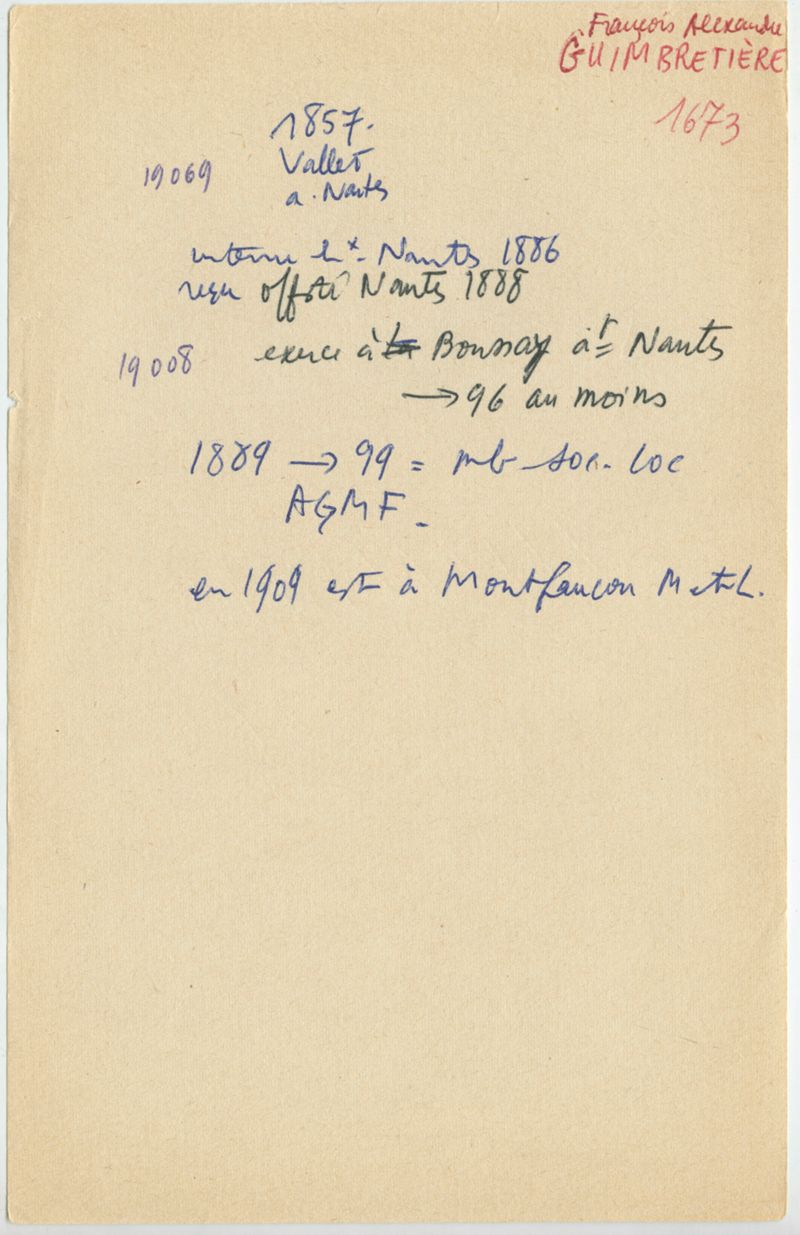 François Alexandre
GUIMBRETIÈRE
1673
1857.
Vallet
19069
a. Nantes
interne hx. Nantes 1886
reçu offté Nantes 1888
19008 exerce à la Boussay àr= Nantes
→ 96 au moins
1889 → 99 = mb soc. loc
AGMF.
en 1909 est à Montfaucon M et L.